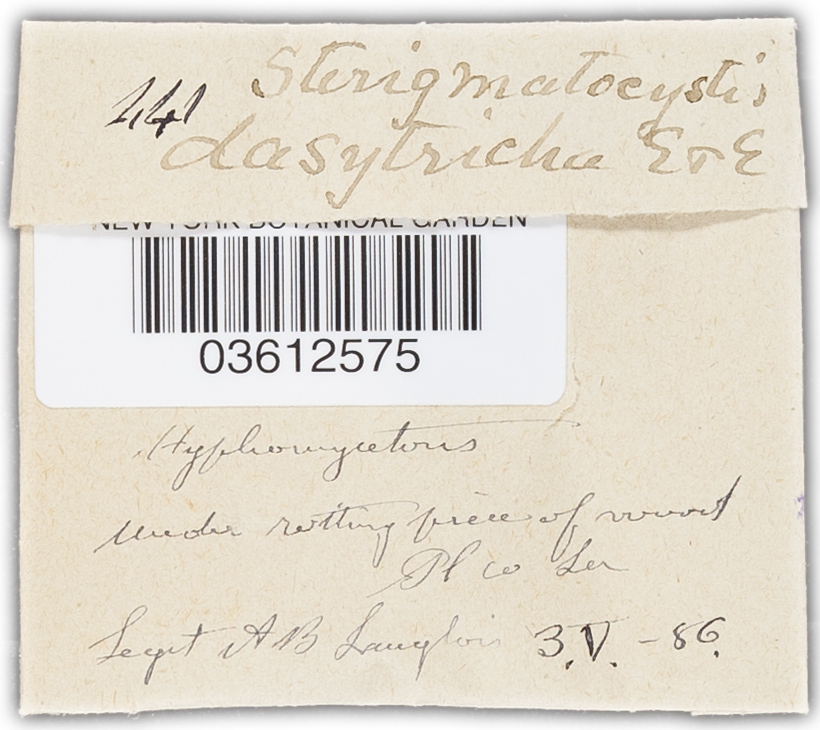 Sterigmatocystis
441 dasytricha E & E
NEW YORK BOTANICAL GARDEN
03612575
Hyphomycetous
Under rotting piece of wood
Pl co La
Legit A B Langlois 3.V. - 86.